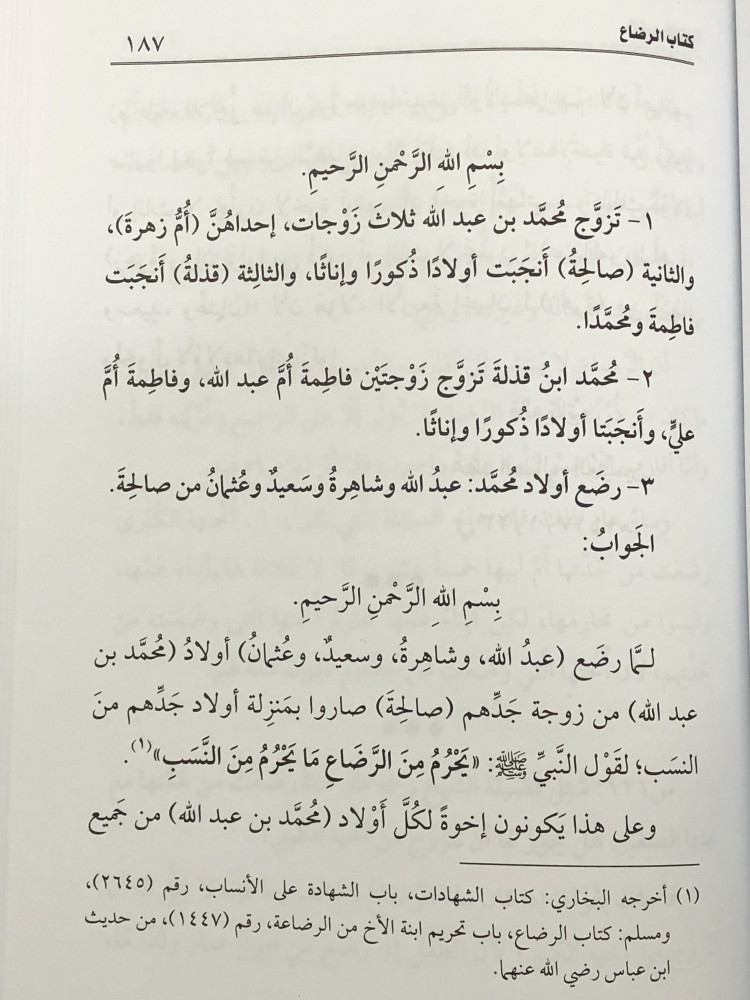 كتاب الرضاع ١٨٧
بِسْمِ اللهِ الرَّحْمنِ الرَّحيمِ.
١- تَزوَّج مُحمَّد بن عبد الله ثلاثَ زَوْجات، إحداهُنَّ (أُمُّ زهرةَ)،
والثانية (صالِحةُ) أَنجَبَت أولادًا ذُكورًا وإناثًا، والثالِثة (قذلةُ) أَنجَبَت
فاطِمةَ ومُحمَّدًا.
٢- مُحمَّد ابنُ قذلةَ تَزوَّج زَوْجتَيْن فاطِمةَ أُمَّ عبد الله، وفاطِمةَ أُمَّ
عليٍّ، وأَنجَبَتا أولادًا ذُكورًا وإناثًا.
٣- رضَع أولاد مُحمَّد: عبدُ الله وشاهِرةُ وسَعيدٌ وعُثمانُ من صالِحةَ.
الجَوابُ:
بِسْمِ اللهِ الرَّحْمنِ الرَّحيمِ.
لـمَّا رضَع (عبدُ الله، وشاهِرةُ، وسعيدٌ، وعُثمانُ) أولادُ (مُحمَّد بن
عبد الله) من زوجة جَدِّهم (صالِحةَ) صاروا بمَنزِلة أولاد جَدِّهم منَ
النسَب؛ لقَوْل النَّبيِّ ﷺ: «يَحْرُمُ مِنَ الرَّضَاعِ مَا يَحْرُمُ مِنَ النَّسَبِ»(١).
وعلى هذا يَكونون إخوةً لكُلِّ أَوْلاد (مُحمَّد بن عبد الله) من جَميع
(١) أخرجه البخاري: كتاب الشهادات، باب الشهادة على الأنساب، رقم (٢٦٤٥)،
ومسلم: كتاب الرضاع، باب تحريم ابنة الأخ من الرضاعة، رقم (١٤٤٧)، من حديث
ابن عباس رضي الله عنهما.